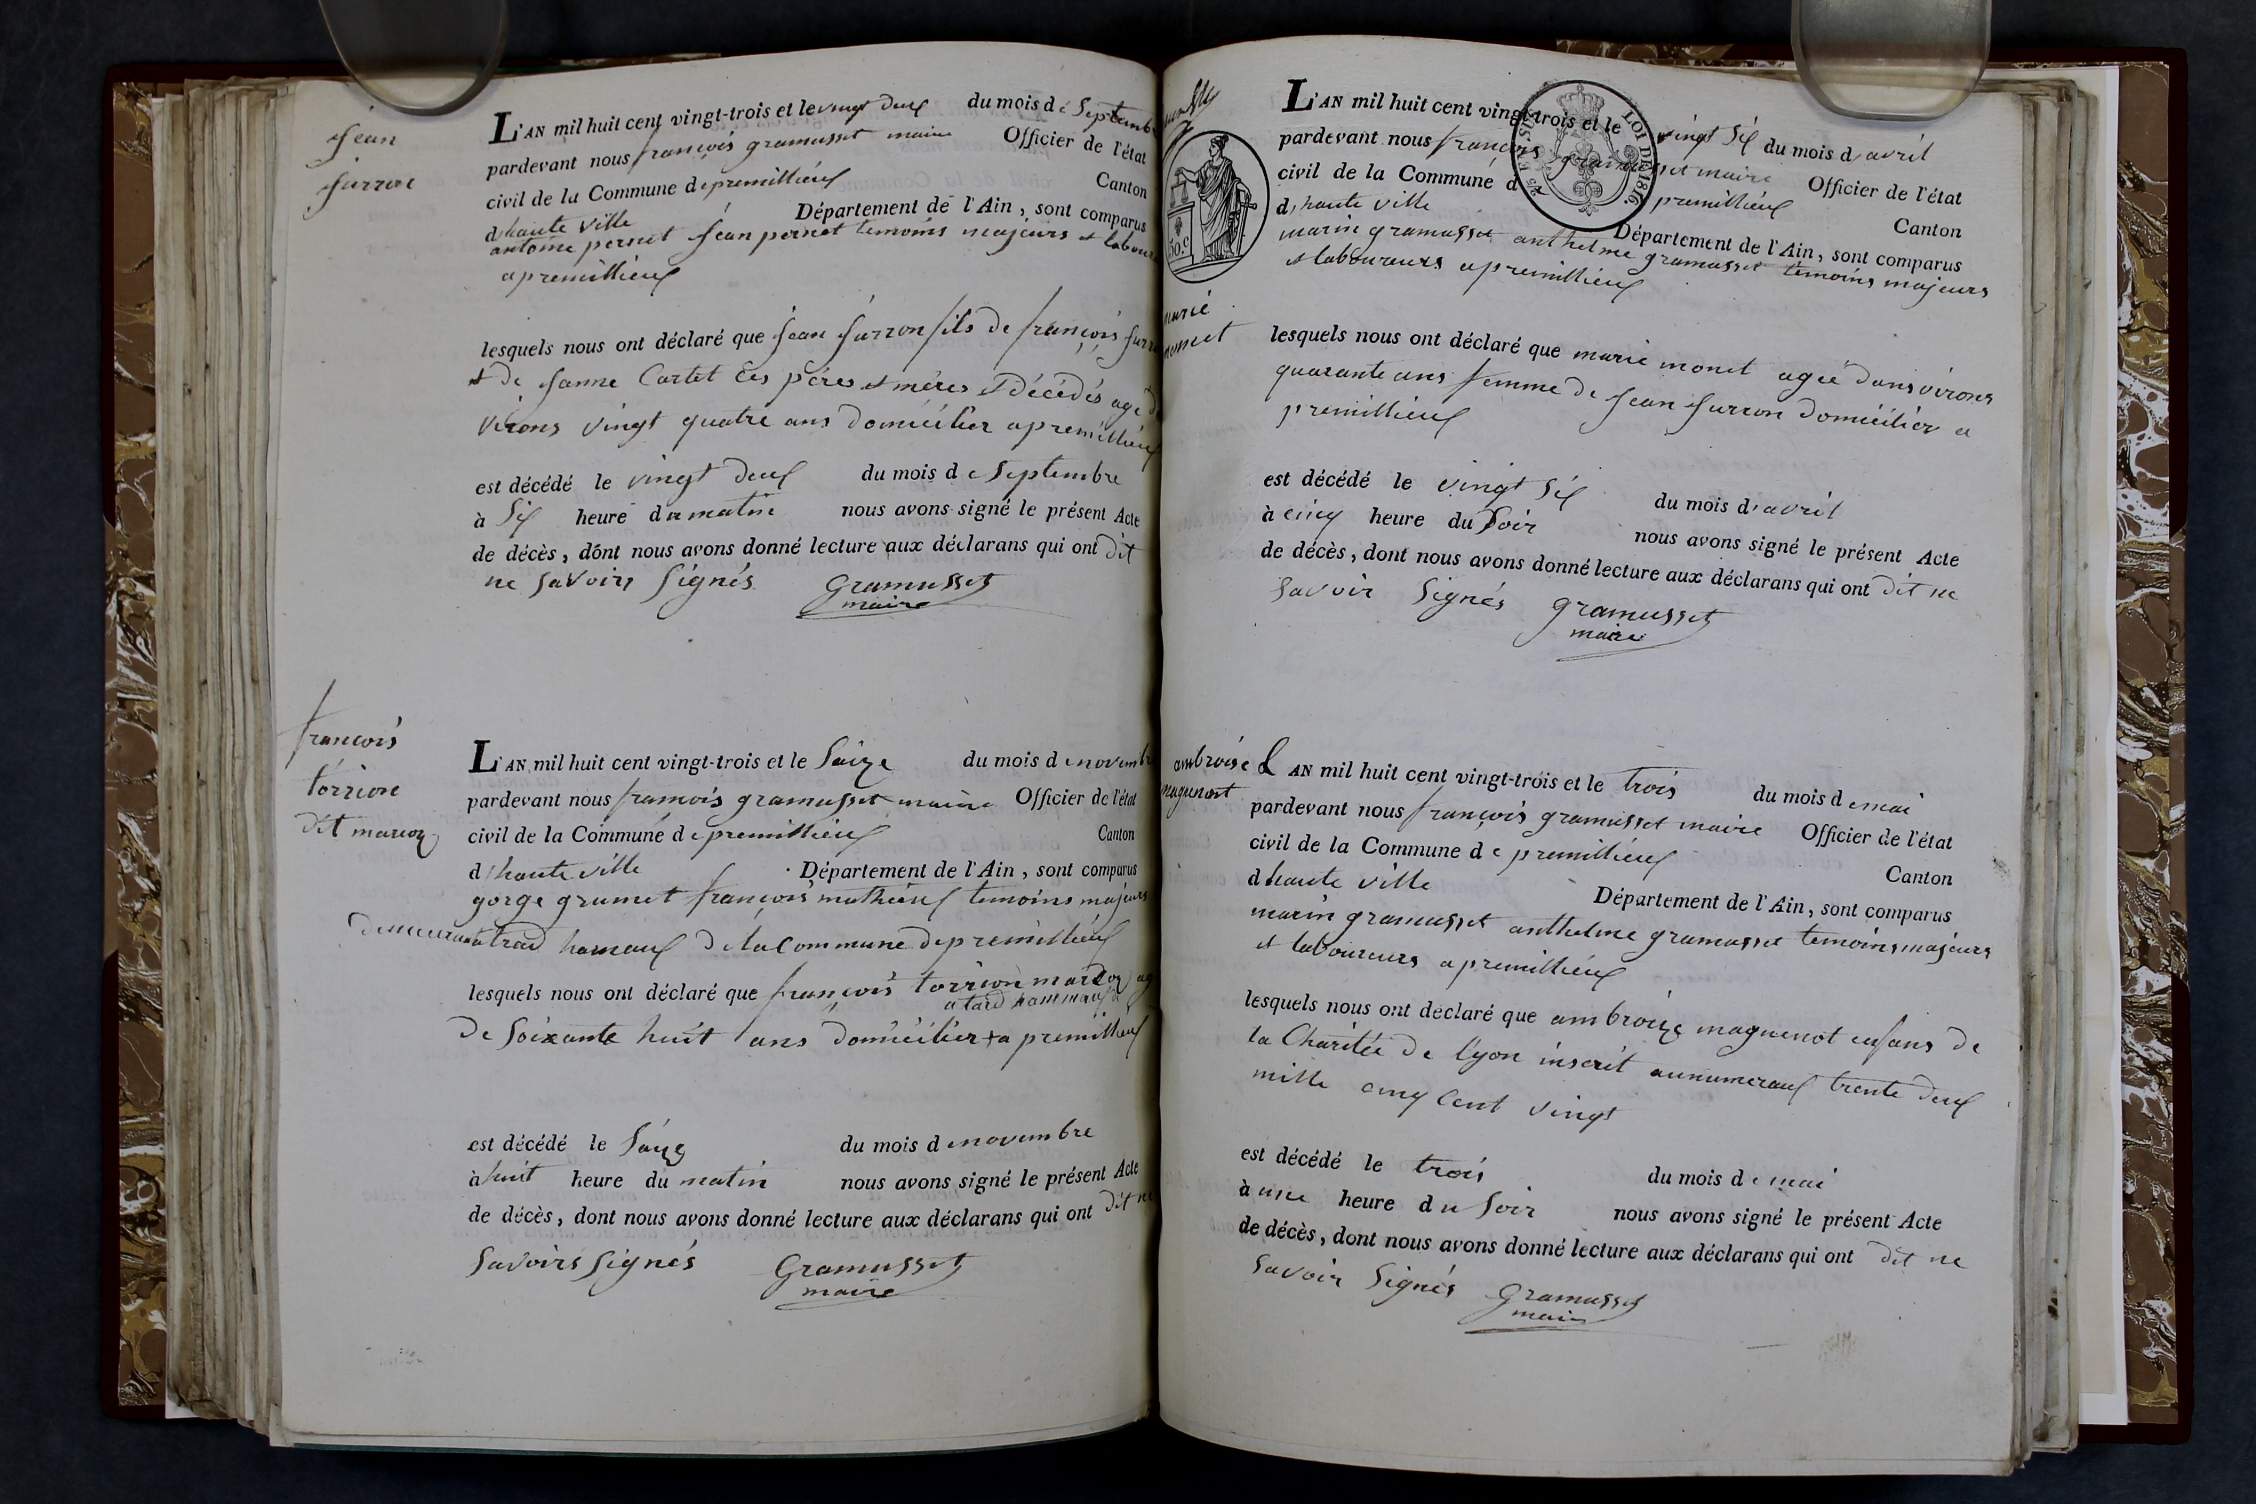 jean
surron
L'AN mil huit cent vingt-trois et le vingt deux du mois de Septemb
pardevant nous françois gramusset maire Officier de l'état
civil de la Commune de premillieux Canton
d'haute ville Département de l'Ain, sont comparus
antoine pernet jean pernet temoins majeurs et laboure
a premillieux
lesquels nous ont déclaré que jean surron fils de françois surro
et de janne Cartet ses péres et méres décédés agé d
virons vingt quatre ans domicilier a premillieux
est décédé le vingt deux du mois de Septembre
à Six heure du matin nous avons signé le présent Acte
de décès, dont nous avons donné lecture aux déclarans qui ont dit
ne Savoirs Signés Gramusset
maire
françois
torrion
dit marion
L'AN mil huit cent vingt-trois et le Saize du mois de novembr
pardevant nous francois gramusset maire Officier de l'état
civil de la Commune de premillieux Canton
d'haute ville Département de l'Ain, sont comparus
gorge grumet françois mathieux temoins majeurs
demeurant a hameaux de la Commune de premillieux
lesquels nous ont déclaré que françois torrion ag
hammaux
de Soixante huit ans domicilier + a premillieux
est décédé le Saize du mois de novembre
à huit heure du matin nous avons signé le présent Acte
de décès, dont nous avons donné lecture aux déclarans qui ont dit ne
Savoirs Signés Gramusset
maire
LOI DE 1816.
50.c
L'AN mil huit cent vingt-trois et le vingt Six du mois d'avril
pardevant nous françois gramusset maire Officier de l'état
civil de la Commune de premillieux Canton
d'haute ville Département de l'Ain, sont comparus
marin gramusset anthelme gramusset temoins majeurs
et laboureurs a premillieux
marie
monet
lesquels nous ont déclaré que marie monet agée dans virons
quarante ans femme de jean surron domicilier a
premillieux
est décédé le vingt Six du mois d'avril
à cinq heure du Soir nous avons signé le présent Acte
de décès, dont nous avons donné lecture aux déclarans qui ont dit ne
Savoir Signés gramusset
maire
ambroise
maguenot
L AN mil huit cent vingt-trois et le trois du mois de mai
pardevant nous françois gramusset maire Officier de l'état
civil de la Commune de premillieux Canton
d haute ville Département de l'Ain, sont comparus
marin gramusset anthelme gramusset temoins majeurs
et laboureurs a premillieux
lesquels nous ont déclaré que ambroize maguenot enfans de
la Charitée de lyon inscrit au numeraux trente deux
mille cinq Cent vingt
est décédé le trois du mois de mai
à une heure du Soir nous avons signé le présent Acte
de décès, dont nous avons donné lecture aux déclarans qui ont dit ne
Savoir Signés Gramusset
maire